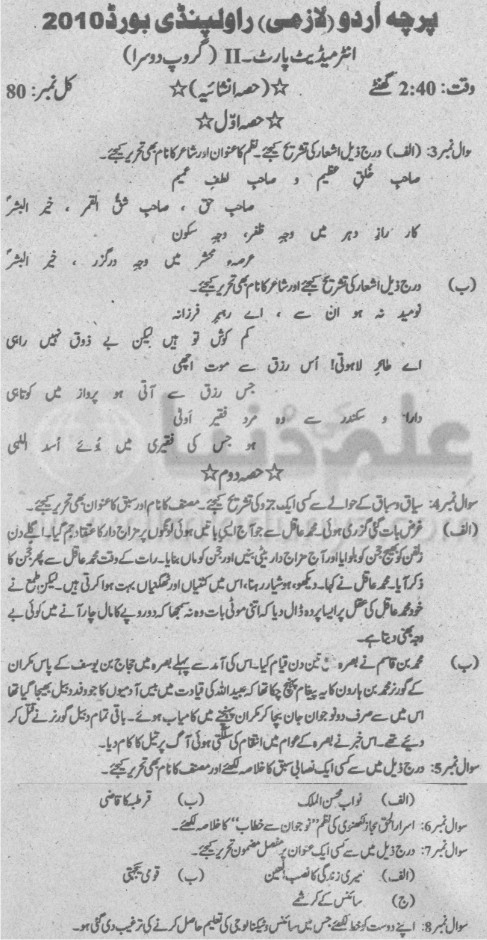 پرچہ اُردو (لازمی) راولپنڈی بورڈ 2010
انٹرمیڈیٹ پارٹ - II (گروپ دوسرا)
وقت: 2:40 گھنٹے ☆(حصہ انشائیہ)☆ کل نمبر: 80
☆حصہ اوّل☆
سوال نمبر 3: (الف) درج ذیل اشعار کی تشریح کیجئے۔ نظم کا عنوان اور شاعر کا نام بھی تحریر کیجئے۔
صاحبِ خُلقِ عظیم و صاحبِ لطفِ عمیم
صاحبِ حق ، صاحبِ شقُّ القمر ، خیر البشرؐ
کار زارِ دہر میں وجہِ ظفر، وجہِ سکون
عرصہ محشر میں وجہِ درگزر ، خیر البشرؐ
(ب) درج ذیل اشعار کی تشریح کیجئے اور شاعر کا نام بھی تحریر کیجئے۔
نومید نہ ہو ان سے ، اے رہبرِ فرزانہ
کم کوش تو ہیں لیکن بے ذوق نہیں راہی
اے طائرِ لاہوتی! اُس رزق سے موت اچھی
جس رزق سے آتی ہو پرواز میں کوتاہی
دارا و سکندر سے وہ مردِ فقیر اَولیٰ
ہو جس کی فقیری میں بُوئے اسد اللہی
علم دُنیا
☆حصہ دوم☆
سوال نمبر 4: سیاق و سباق کے حوالے سے کسی ایک جزو کی تشریح کیجئے۔ مصنف کا نام اور سبق کا عنوان بھی تحریر کیجئے۔
(الف) غرض بات گئی گزری ہوئی۔ محمد عاقل سے جو آج ایسی باتیں ہوئی لوگوں پر مزاج دار کا اعتقاد جم گیا۔ اگلے دن
زلفن کو بھیج حجن کو بلوایا اور آج مزاج دار بیٹی بنیں اور حجن کو ماں بنایا۔ رات کے وقت محمد عاقل سے پھر حجن کا
ذکر آیا۔ محمد عاقل نے کہا۔ دیکھو، ہوشیار رہنا، اس میں کٹنیاں اور ٹھگنیاں بہت ہوا کرتی ہیں۔ لیکن طمع نے
خود محمد عاقل کی عقل پر ایسا پردہ ڈال دیا کہ اتنی موٹی بات وہ نہ سمجھا کہ دو روپے کا مال چار آنے میں کوئی بے
وجہ بھی دیتا ہے۔
(ب) محمد بن قاسم نے بصرہ تین دن قیام کیا۔ اس کی آمد سے پہلے بصرہ میں حجاج بن یوسف کے پاس مکران
کے گورنر محمد بن ہارون کا یہ پیغام پہنچ چکا تھا کہ عبید اللہ کی قیادت میں بیس آدمیوں کا جو وفد دیبل بھیجا گیا تھا
اس میں سے صرف دو نوجوان جان بچا کر مکران پہنچنے میں کامیاب ہوئے۔ باقی تمام دیبل گورنر نے قتل کر
دئیے تھے۔ اس خبر نے بصرہ کے عوام میں انتقام کی سلگتی ہوئی آگ پر تیل کا کام دیا۔
سوال نمبر 5: درج ذیل میں سے کسی ایک نصابی سبق کا خلاصہ لکھئے اور مصنف کا نام بھی تحریر کیجئے۔
(الف) نواب محسن الملک (ب) قرطبہ کا قاضی
سوال نمبر 6: اسرار الحق مجاز لکھنوی کی نظم "نوجوان سے خطاب" کا خلاصہ لکھئے۔
سوال نمبر 7: درج ذیل میں سے کسی ایک عنوان پر مفصل مضمون تحریر کیجئے۔
(الف) میری زندگی کا نصب العین (ب) قومی یکجہتی
(ج) سائنس کے کرشمے
سوال نمبر 8: اپنے دوست کو خط لکھئے جس میں سائنس و ٹیکنالوجی کی تعلیم حاصل کرنے کی ترغیب دی گئی ہو۔